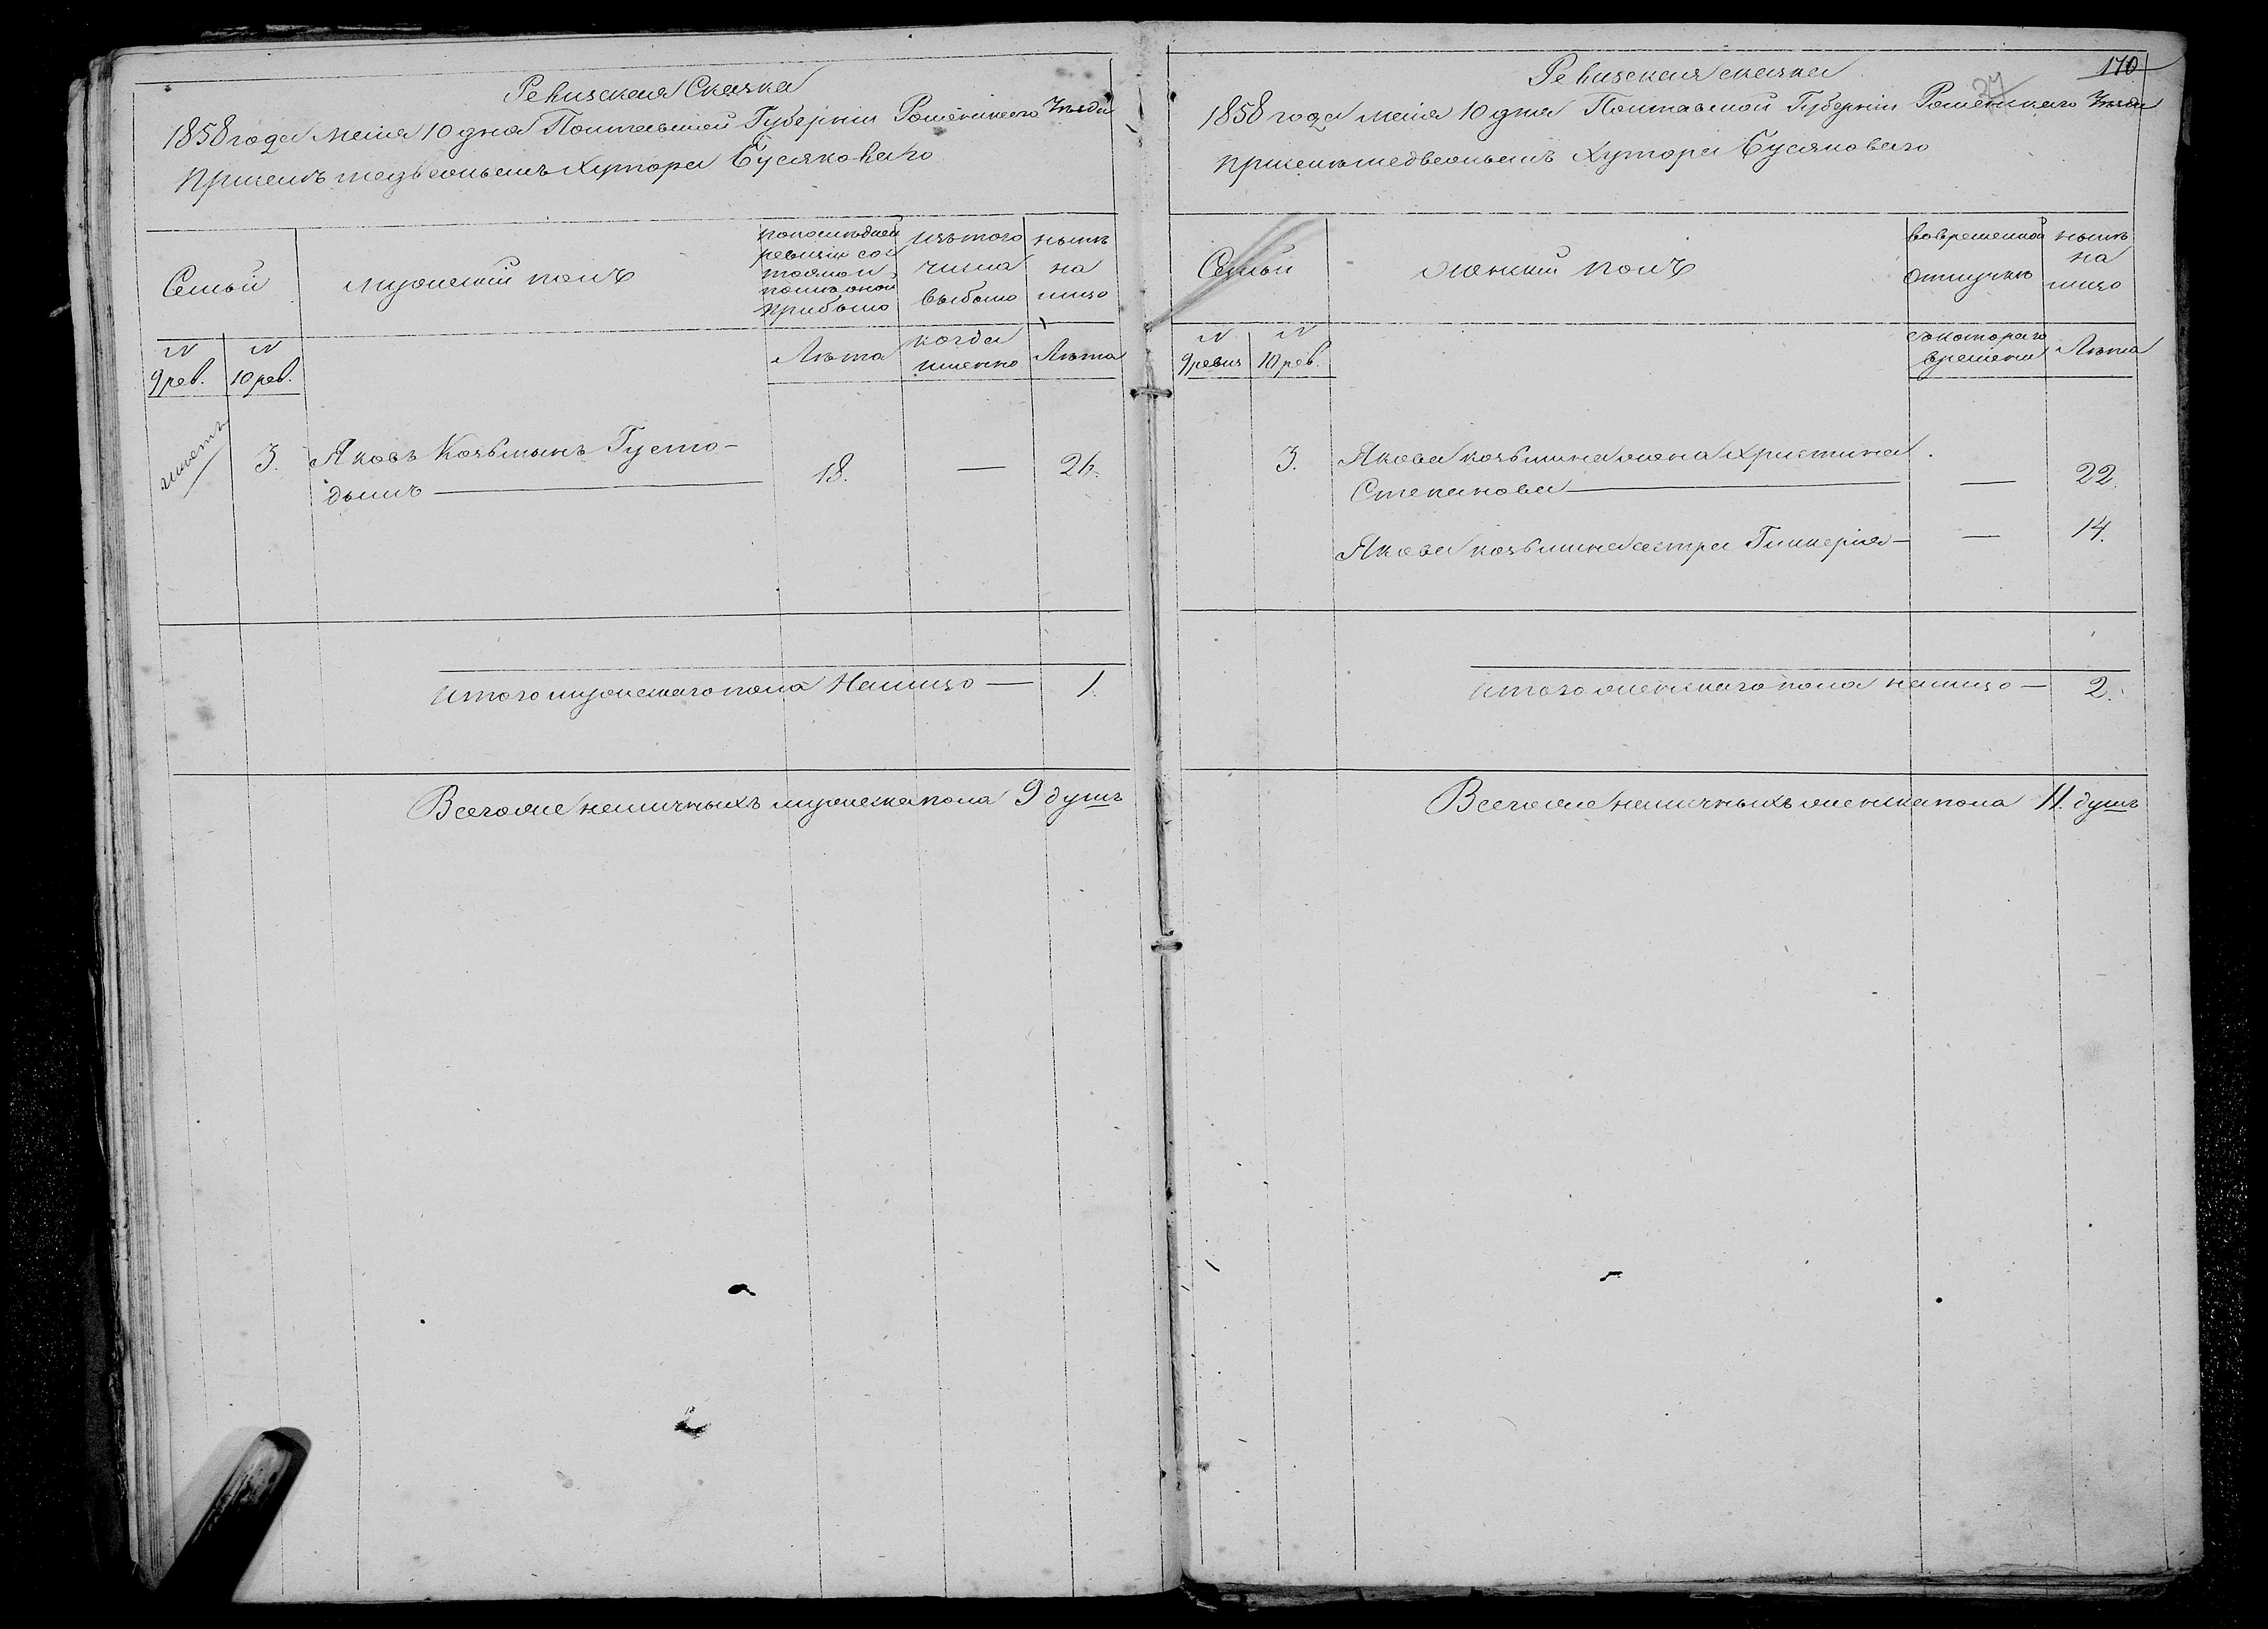 Ревизская Сказка
1858 года маія 10 дня Полтавской Губерніи Роменского Уѣзда
Хутора Бусяковаго
Семьи
мужескій полъ
по последней
ревизіи сос
тояло и
послѣ оной
прибыло
изъ того
числа
выбыло
нынѣ
на
лицо
№
9 рев.
№
10 рев.
Лѣта
когда
именно
Лѣта
3. Яковъ Козьминъ Густо-
дымъ 18. — 26.
итого мужескаго пола На лицо — 1.
Всего же наличныхъ мужеска пола 9 душъ
170
27
Ревизская сказка
1858 года маія 10 дня Полтавской Губерніи Роменскаго Уѣзда
Хутора Бусяковаго
Семьи
женскій полъ
во временной
отлучкѣ
нынѣ
на
лицо
№
9 ревиз
№
10 рев.
съ котораго
времени
Лѣта
3. Якова козьмина жена Христина
Степанова — 22.
Якова козьмина сестра Гликерія — — 14.
итого женскаго пола на лицо — 2.
Всего же наличныхъ женска пола 11. душъ